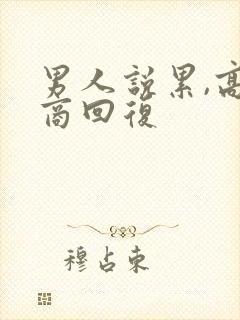 男人說累,高
商回復
穆占東